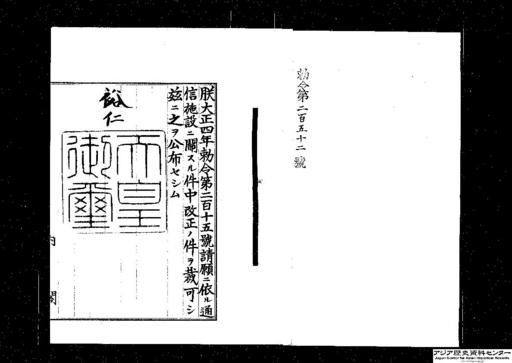 勅令第二百五十二號
朕大正四年勅令第二百十五號請願ニ依ル通
信施設ニ關スル件中改正ノ件ヲ裁可シ
茲ニ之ヲ公布セシム
裕仁
天皇
御璽
内閣
アジア歴史資料センター
Japan Center for Asian Historical Records